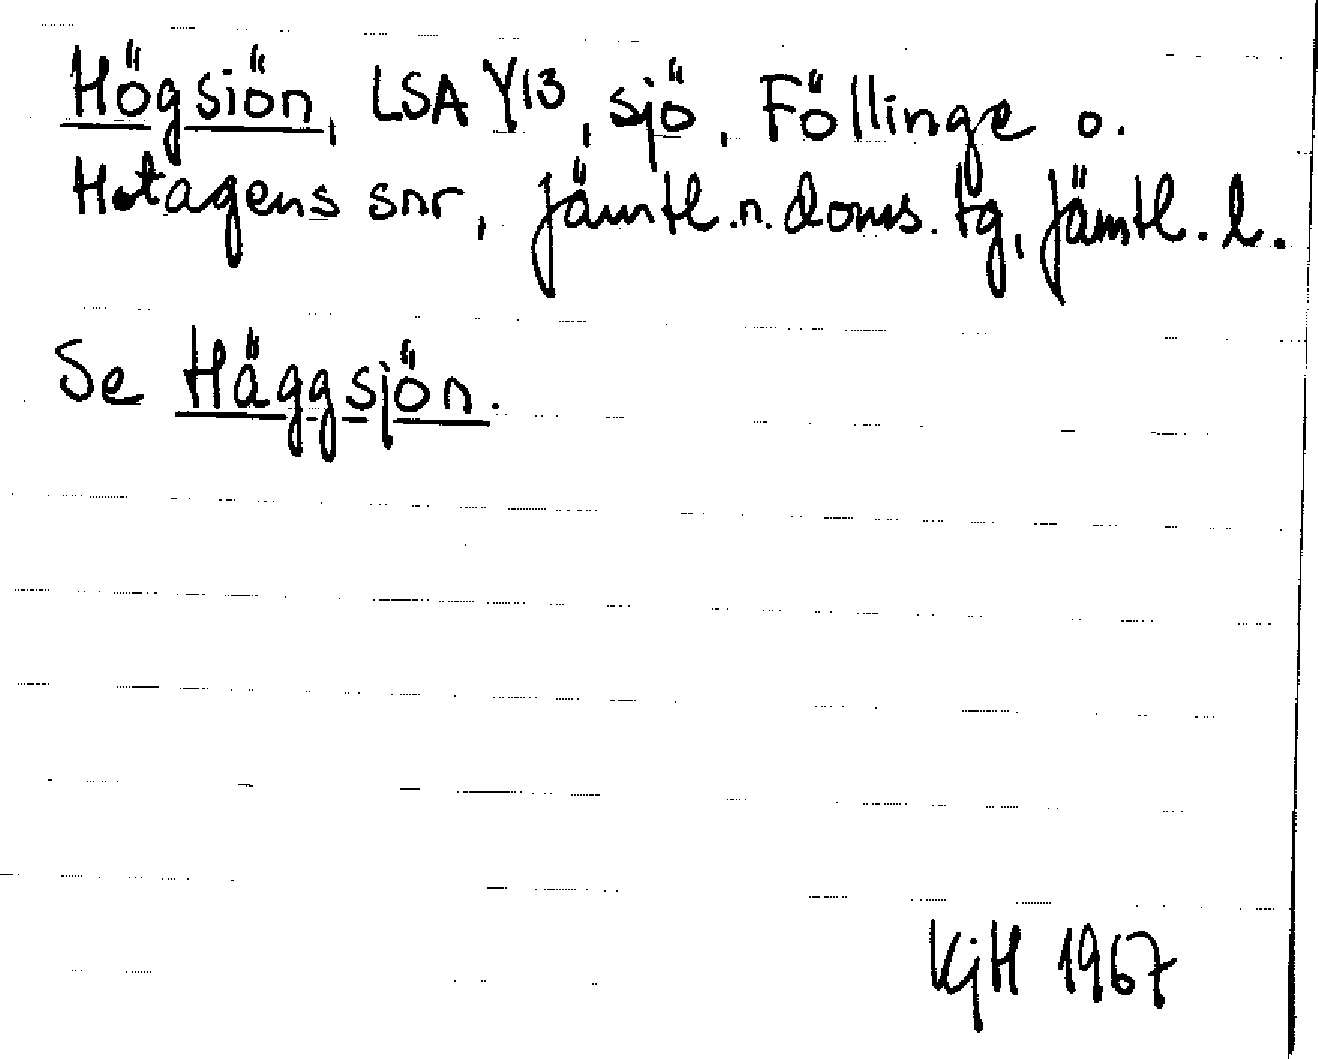 Högsiön, LSA Y13, sjö, Föllinge o.
Hotagens snr, Jämtl. n. doms. tg, Jämtl. l.
Se Häggsjön.
KjH 1967